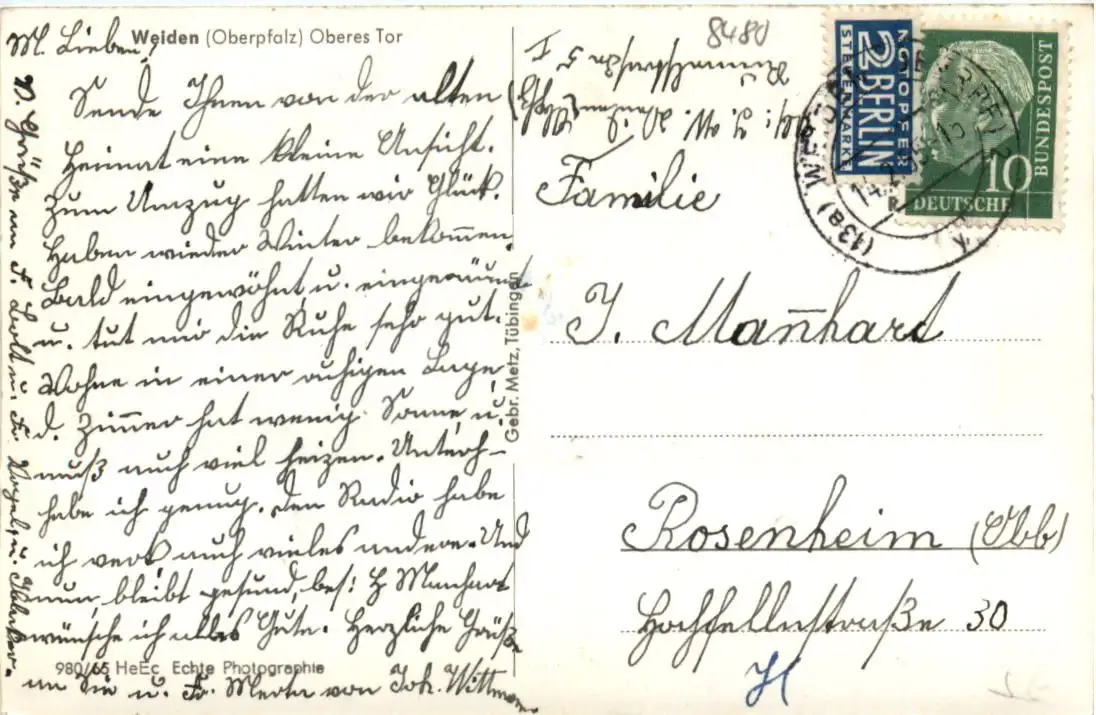 Weiden (Oberpfalz) Oberes Tor
M. Lieben!
Sende Ihnen von der alten
Heimat eine kleine Ansicht.
Zum Umzug hatten wir Glück.
Haben wieder Winter bekommen.
Bald eingewöhnt, u. eingeräumt
u. tut mir die Ruhe sehr gut.
Wohne in einer ruhigen Lage
d. Zimmer hat wenig Sonne, u.
muß auch viel heizen. Unterh-
habe ich genug, den Radio habe
ich auch vieles andere. Und
nun, bleibt gesund, bes: H Manhart
wünsche ich alles Gute. Herzliche Grüße
an Sie u. Fr. Merta von Joh. Wittmann
V. Grüße an F. u. Fr. Vogel, u.
980/65 HeEc Echte Photographie
Gebr. Metz, Tübingen
8480
Abs: J. W. Weiden Opf)
5 I
NOTOPFER
2 BERLIN
STEUERMARKE
DEUTSCHE
BUNDESPOST
10
(13a) WEIDEN
Familie
J. Manhard
Rosenheim (Obb)
Hochfellnstraße 30
H